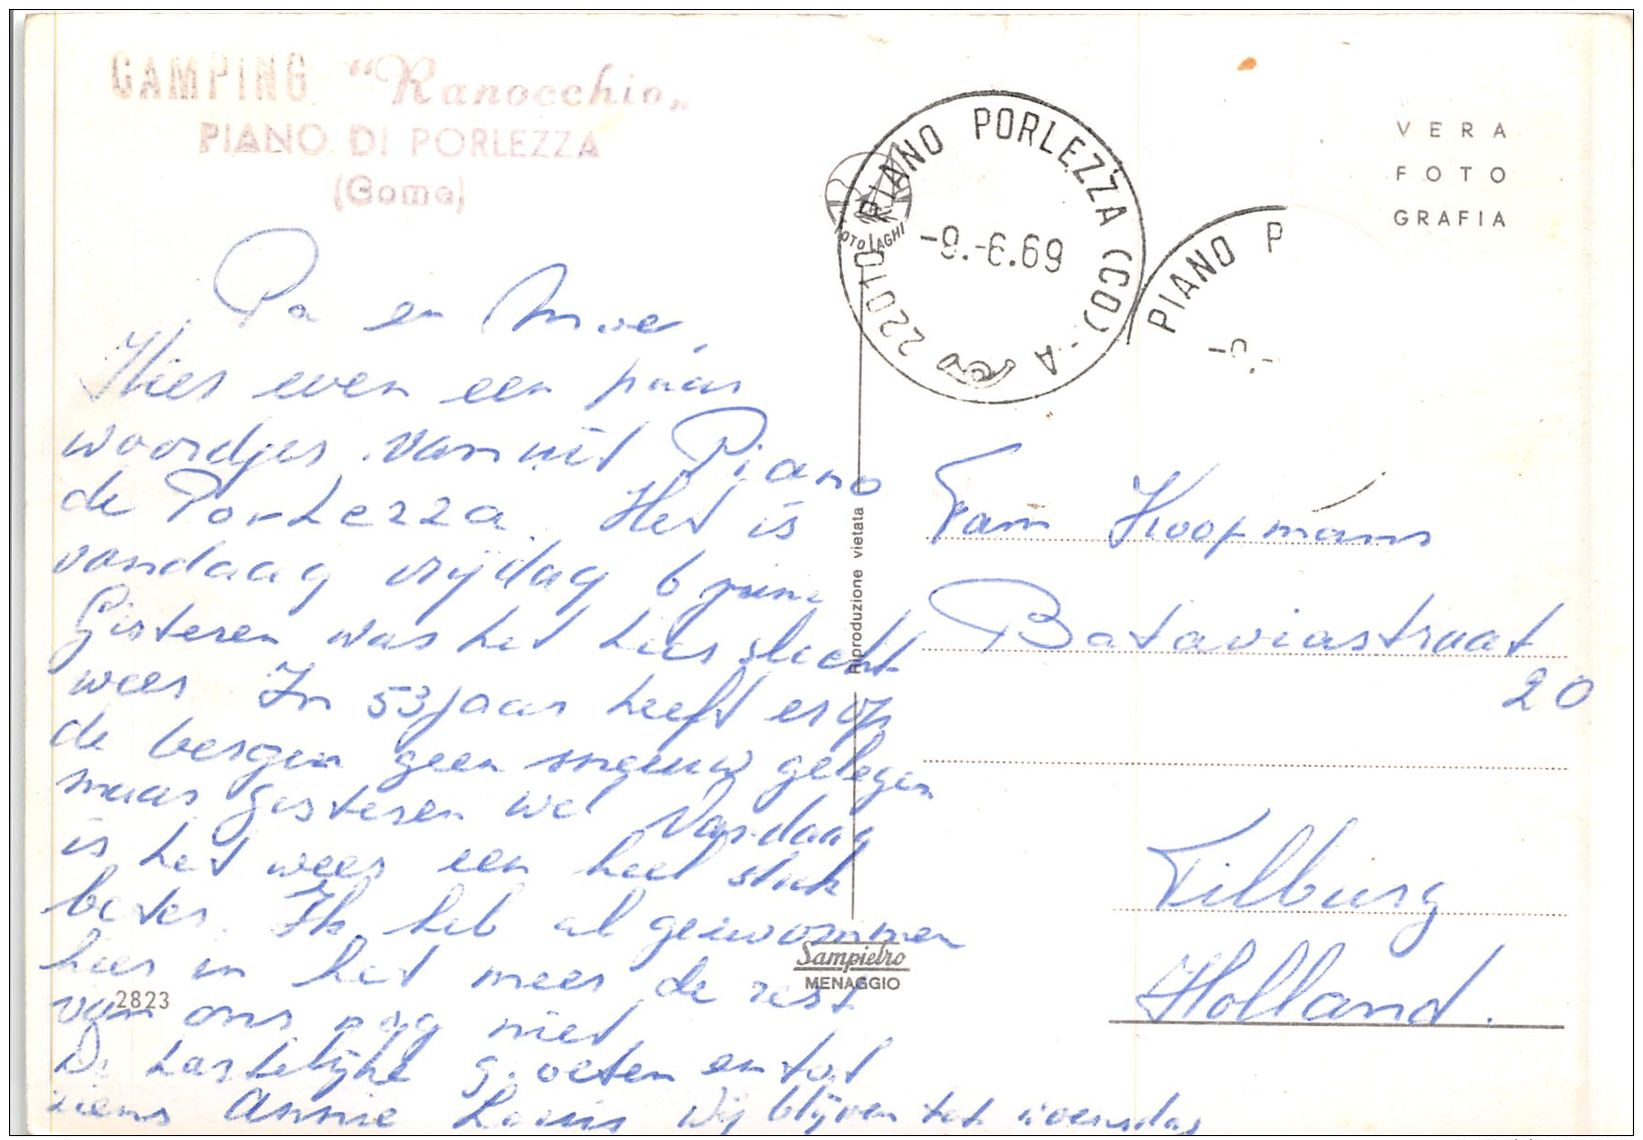 CAMPING "Ranocchio„
PIANO DI PORLEZZA
(Como)
Pa en Moe,
Hier even een paar
woordjes vanuit Piano
de Porlezza. Het is
vandaag vrijdag 6 juni
Gisteren was het hier slecht
weer In 53 jaar heeft er op
de bergen geen sneeuw gelegen
maar gisteren wel Vandaag
is het weer een heel stuk
beter. Ik heb al gezwommen
hier in het meer de rest
van ons nog niet
De hartelijke groeten en tot
ziens Annie Louis Wij blijven tot woensdag
2823
FOTO LAGHI
22010 PIANO PORLEZZA (CO) - A
-9.-6.69
PIANO P
-9.-
VERA
FOTO
GRAFIA
Riproduzione vietata
Sampietro
MENAGGIO
Fam Koopmans
Bataviastraat
20
Tilburg
Holland.